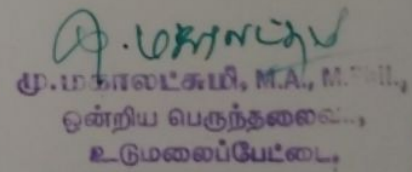 மு. மகாலட்சுமி
மு.மகாலட்சுமி, M.A., M.Phil.,
ஒன்றிய பெருந்தலைவர்,
உடுமலைப்பேட்டை.